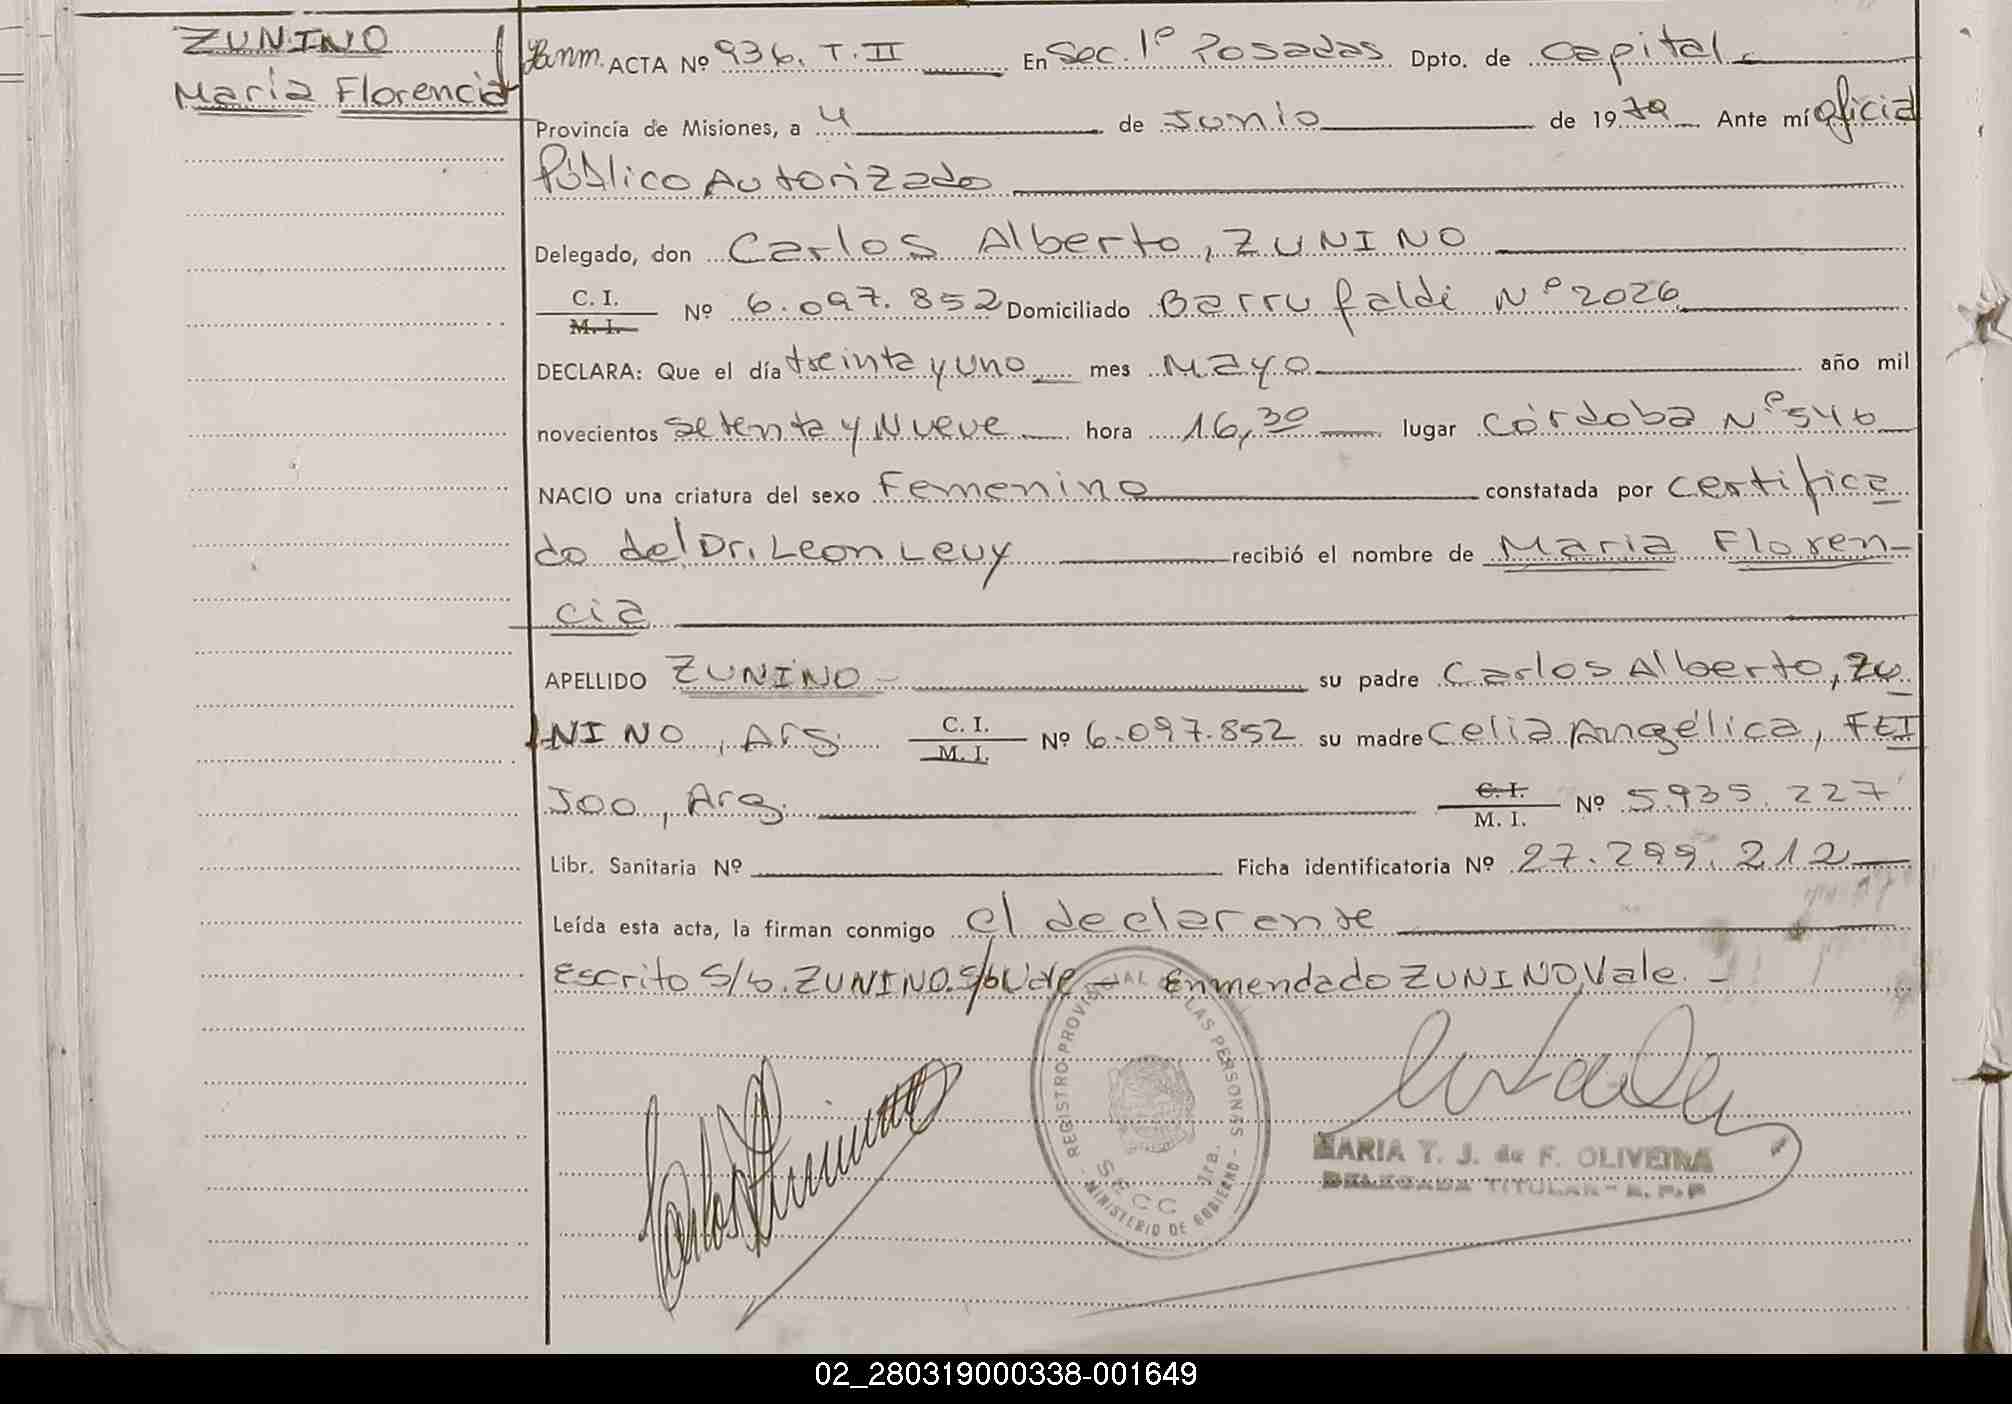 ZUNINO
María Florencia
ACTA Nº 936. T. II En Sec. 1º Posadas Dpto. de Capital
Provincia de Misiones, a 4 de Junio de 1979 Ante mí Oficial
Público Autorizado
Delegado, don Carlos Alberto, ZUNINO
C. I.
M. I. Nº 6.097.852 Domiciliado Barrufaldi Nº 2026
DECLARA: Que el día treinta y uno mes Mayo año mil
novecientos setenta y Nueve hora 16,30 lugar Córdoba Nº 546
NACIO una criatura del sexo Femenino constatada por certifica
do del Dr. Leon Levy recibió el nombre de María Floren-
cia
APELLIDO ZUNINO - su padre Carlos Alberto, ZU
NINO, Arg. C. I. M. I. Nº 6.097.852 su madre Celia Angélica, FEI
JOO, Arg. C. I. M. I. Nº 5.935.227
Libr. Sanitaria Nº Ficha identificatoria Nº 27.299.212
Leída esta acta, la firman conmigo el declarante
Escrito S/b. ZUNINO. S/b Vale - Enmendado ZUNINO, Vale. -
REGISTRO PROVINCIAL DE LAS PERSONAS
SECC 1ra.
- MINISTERIO DE GOBIERNO -
MARIA Y. J. de F. OLIVEIRA
DELEGADA TITULAR - R. P. P
02_280319000338-001649